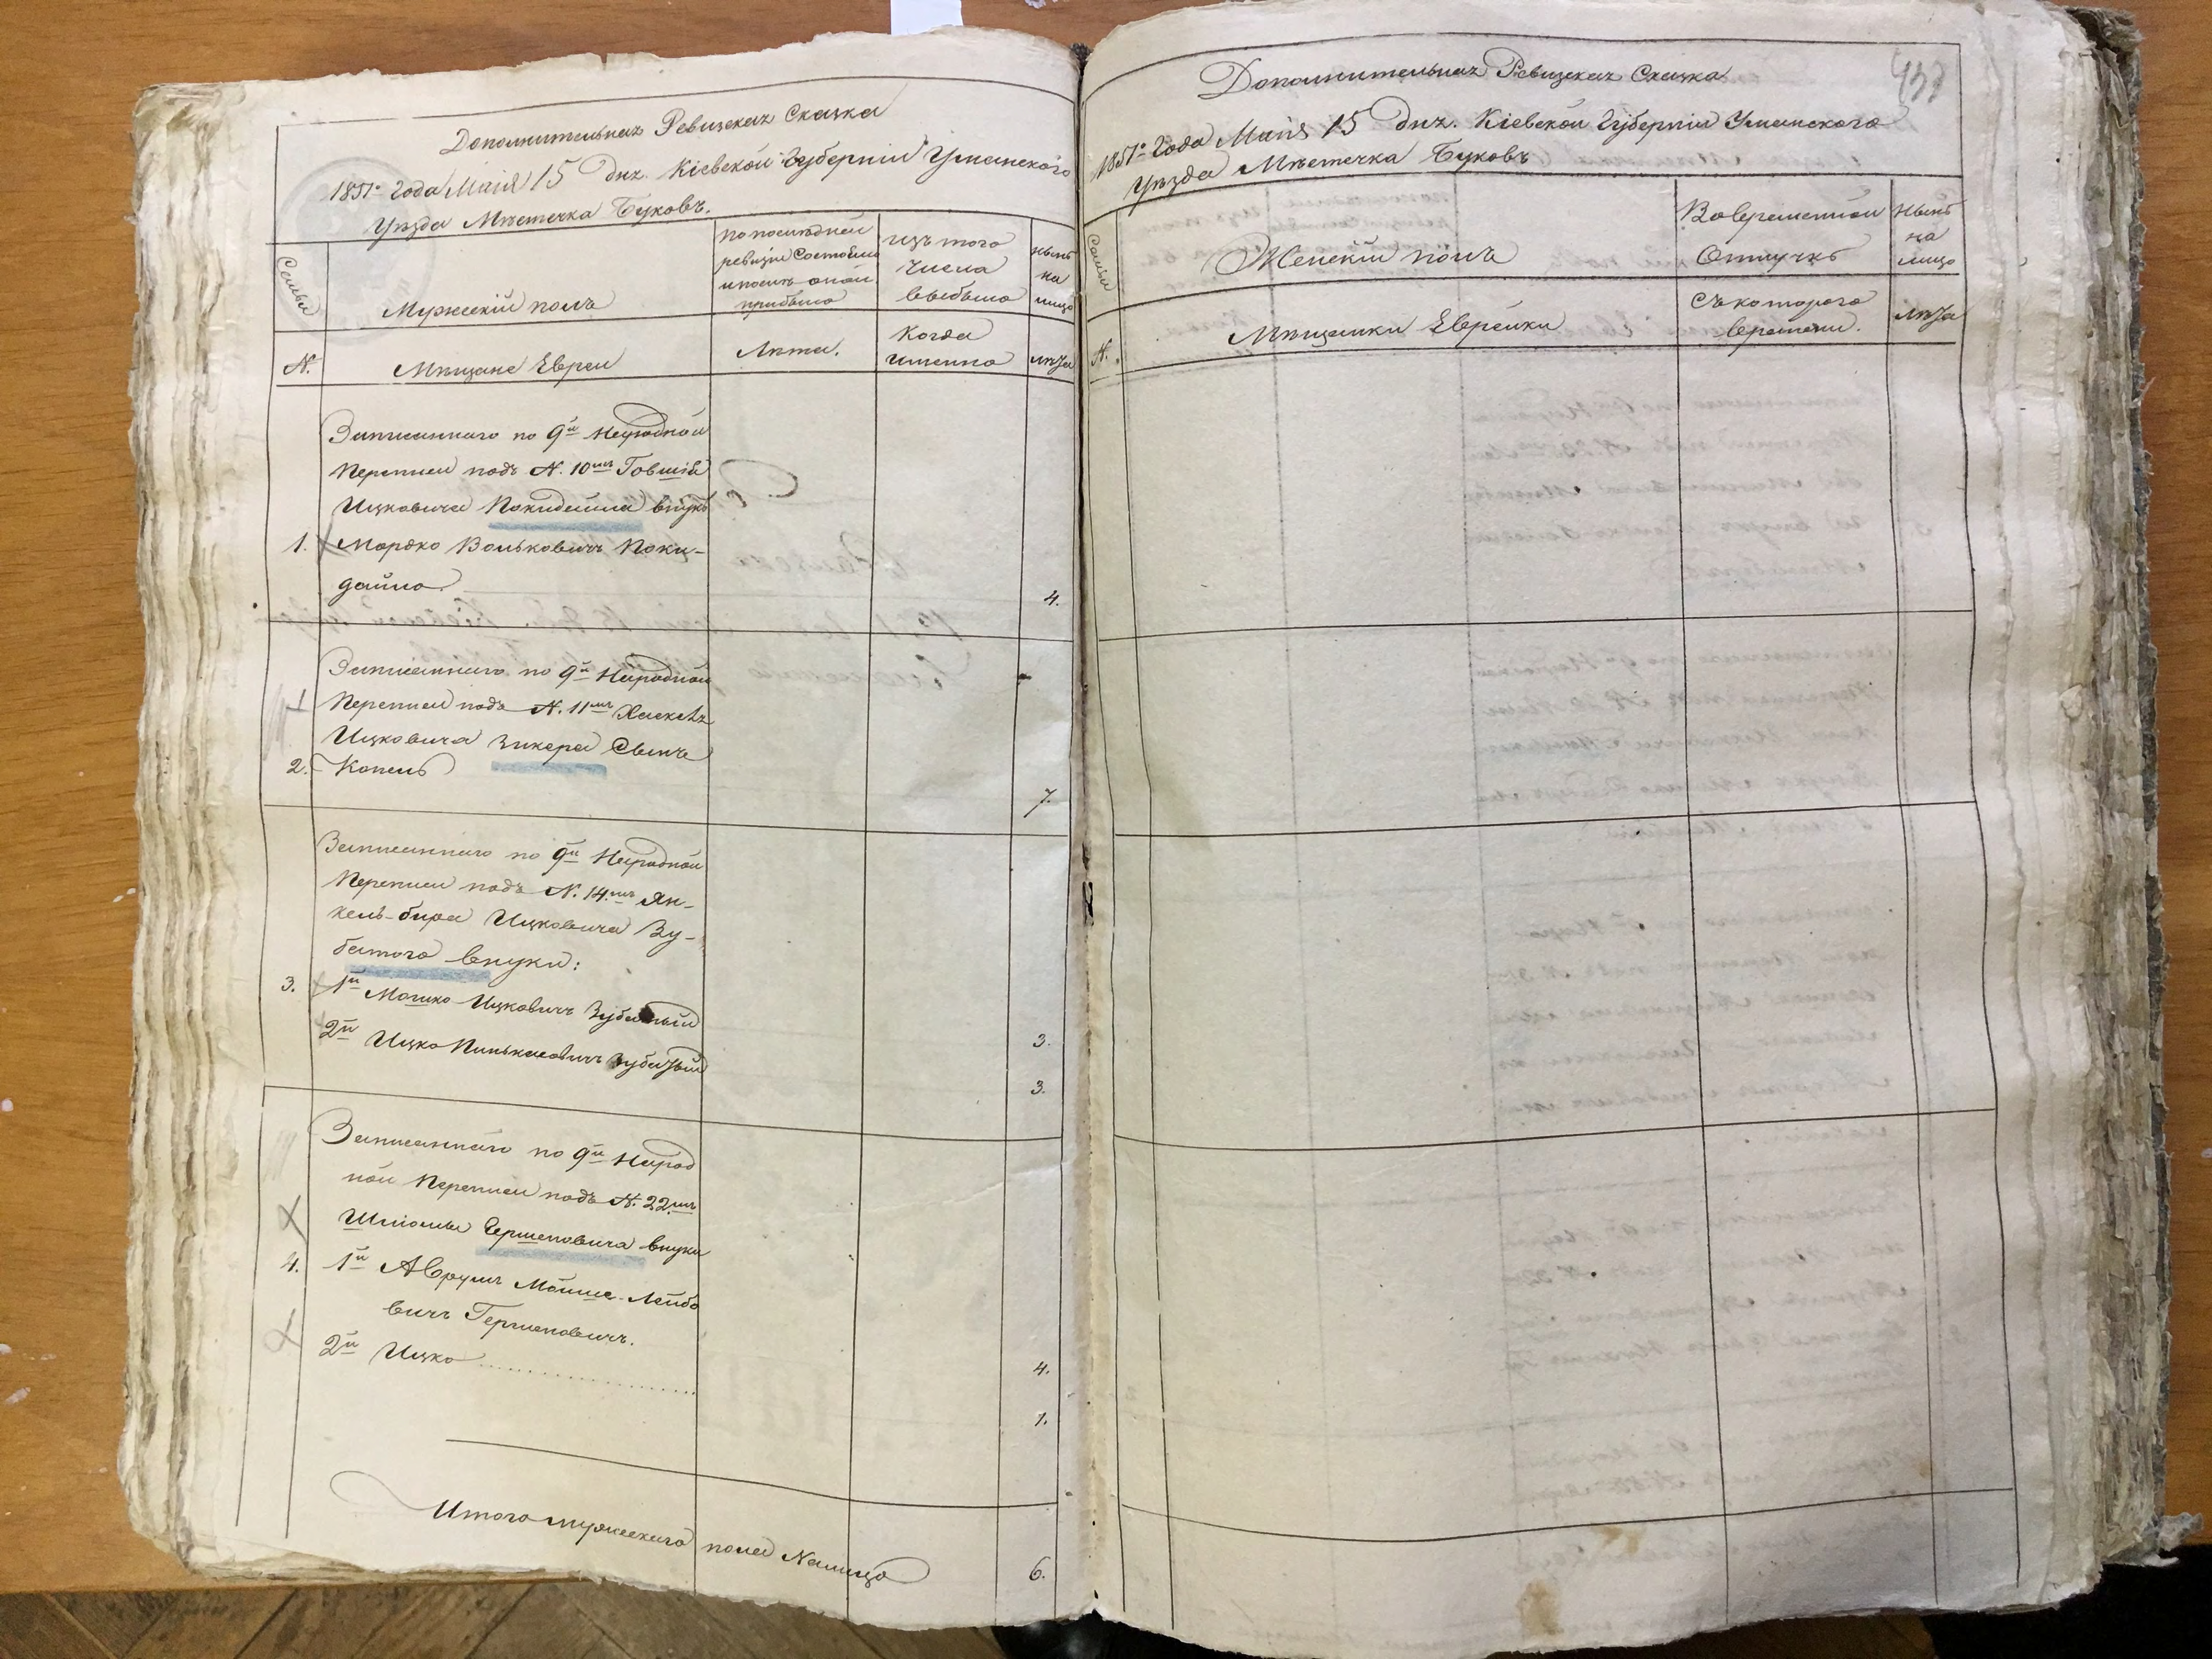 Дополнительная Ревизская Сказка
1851го Года Маія 15 дня. Кіевской Губерніи Уманского
Уѣзда Мѣстечка Буковъ.
Семьи
Мужескій полъ
по послѣдней
ревизіи Состояло
и послѣ оной
прибыло
изъ того
числа
выбыло
нынѣ
на
лицо
№.
Мѣщане Евреи
Лѣта.
Когда
именно
лѣта
Записанного по 9й Народной
Переписи подъ №. 10мъ Говшія
Ицковича Покидайла внукъ
1. Мордко Вольковичъ Поки-
дайло.
4.
Записанного по 9й Народной
Переписи подъ №. 11мъ Хаскеля
Ицковича Зикера Сынъ
2. Копель
7.
Записанного по 9й Народной
Переписи подъ №. 14.мъ Ян-
кель-бира Ицковича Зу-
батого внуки:
3. 1й Мошко Ицковичъ Зубатый
3.
2й Ицко Пинькасовичъ Зубатый
3.
Записанного по 9й Народ
ной Переписи подъ №. 22.мъ
Шліомы Гершеновича внуки
4. 1й Аврумъ Мойше-Лейбо
вичъ Гершеновичъ.
4.
2й Ицко
1.
Итого мужескаго пола Налицо
6.
Дополнительная Ревизская Сказка
1851го Года Маія 15 дня. Кіевской Губерніи Уманского
Уѣзда Мѣстечка Буковъ
Семьи
Женскій полъ
Во временной
Отлучкѣ
нынѣ
на
лицо
№.
Мѣщанки Еврейки
Съ котораго
времени.
лѣта